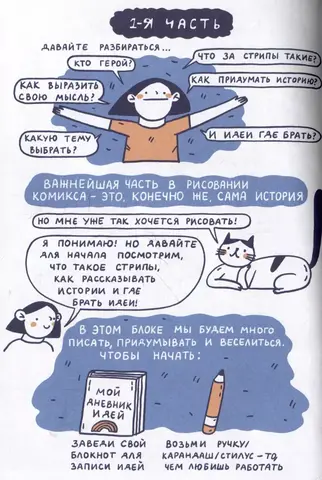 1-Я ЧАСТЬ
ДАВАЙТЕ РАЗБИРАТЬСЯ...
КТО ГЕРОЙ?
ЧТО ЗА СТРИПЫ ТАКИЕ?
КАК ВЫРАЗИТЬ
СВОЮ МЫСЛЬ?
КАК ПРИДУМАТЬ ИСТОРИЮ?
КАКУЮ ТЕМУ
ВЫБРАТЬ?
И ИДЕИ ГДЕ БРАТЬ?
ВАЖНЕЙШАЯ ЧАСТЬ В РИСОВАНИИ
КОМИКСА – ЭТО, КОНЕЧНО ЖЕ, САМА ИСТОРИЯ
НО МНЕ УЖЕ ТАК ХОЧЕТСЯ РИСОВАТЬ!
Я ПОНИМАЮ! НО ДАВАЙТЕ
ДЛЯ НАЧАЛА ПОСМОТРИМ,
ЧТО ТАКОЕ СТРИПЫ,
КАК РАССКАЗЫВАТЬ
ИСТОРИИ И ГДЕ
БРАТЬ ИДЕИ!
В ЭТОМ БЛОКЕ МЫ БУДЕМ МНОГО
ПИСАТЬ, ПРИДУМЫВАТЬ И ВЕСЕЛИТЬСЯ.
ЧТОБЫ НАЧАТЬ:
МОЙ
ДНЕВНИК
ИДЕЙ
ЗАВЕДИ СВОЙ
БЛОКНОТ ДЛЯ
ЗАПИСИ ИДЕЙ
ВОЗЬМИ РУЧКУ/
КАРАНДАШ/СТИЛУС – ТО,
ЧЕМ ЛЮБИШЬ РАБОТАТЬ